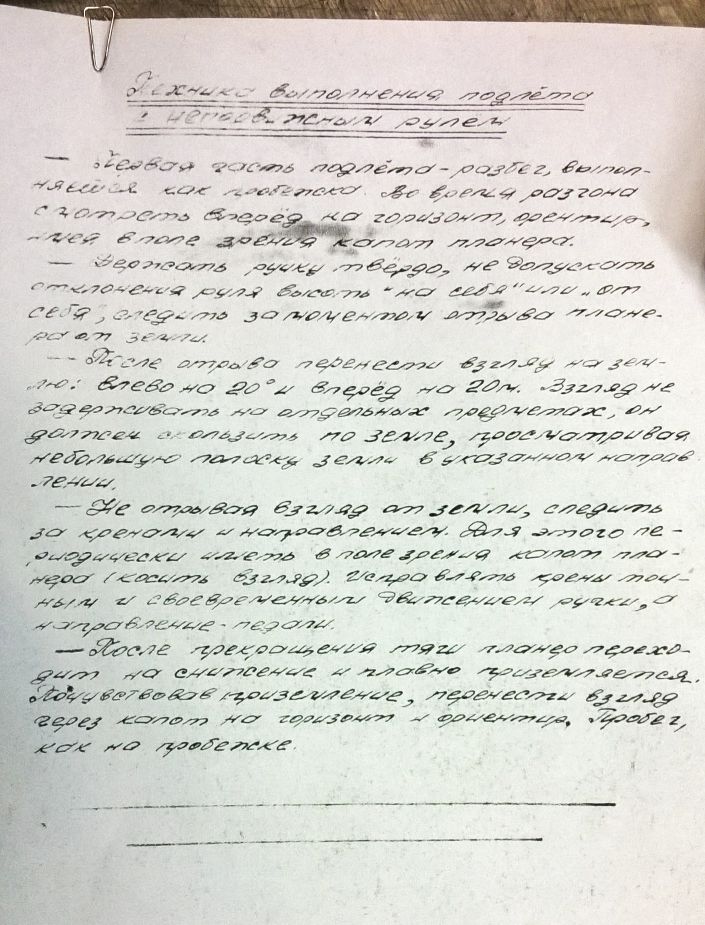 Техника выполнения подлёта
с неподвижным рулем
— Первая часть подлёта - разбег, выпол-
няется как пробежка. Во время разгона
смотреть вперёд на горизонт, орентир,
имея в поле зрения капот планера.
— Держать ручку твёрдо, не допускать
отклонения руля высоты "на себя" или "от
себя", следить за моментом отрыва плане-
ра от земли.
— После отрыва перенести взгляд на зем-
лю: влево на 20° и вперёд на 20м. Взгляд не
задерживать на отдельных предметах, он
должен скользить по земле, просматривая
небольшую полоску земли в указанном направ-
лении.
— Не отрывая взгляд от земли, следить
за кренами и направлением. Для этого пе-
риодически иметь в поле зрения капот пла-
нера (косить взгляд). Исправлять крены точ-
ным и своевременным движением ручки, а
направление - педали.
— После прекращения тяги планер перехо-
дит на снижение и плавно приземляется.
Почувствовав приземление, перенести взгляд
через капот на горизонт и ориентир. Пробег,
как на пробежке.